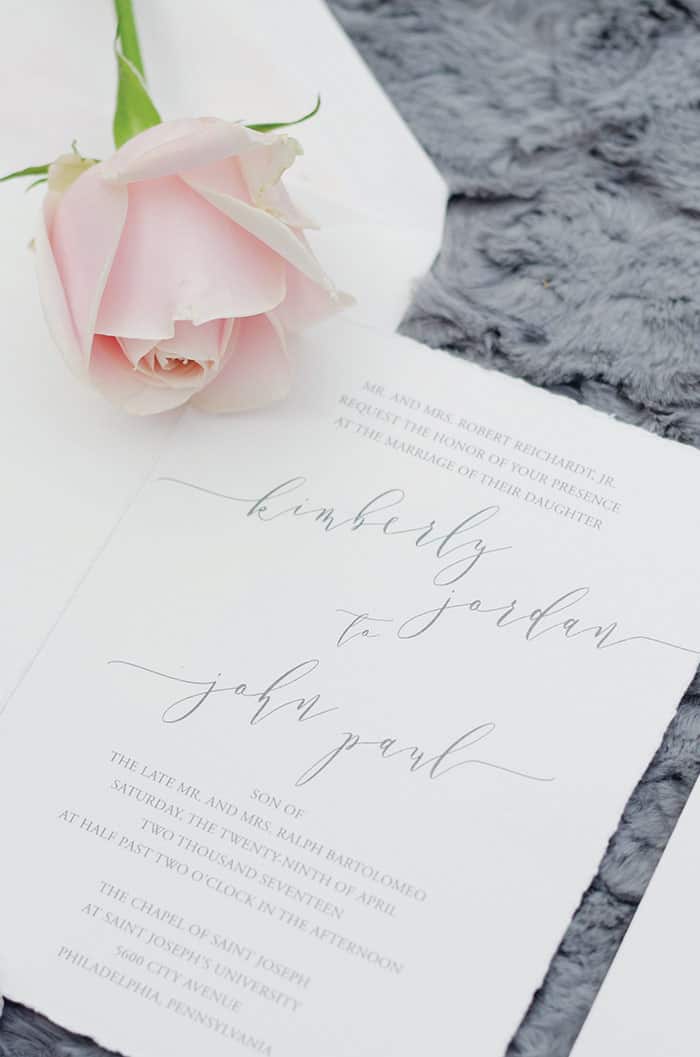 MR. AND MRS. ROBERT REICHARDT, JR.
REQUEST THE HONOR OF YOUR PRESENCE
AT THE MARRIAGE OF THEIR DAUGHTER
kimberly
jordan
to
john
paul
SON OF
THE LATE MR. AND MRS. RALPH BARTOLOMEO
SATURDAY, THE TWENTY-NINTH OF APRIL
TWO THOUSAND SEVENTEEN
AT HALF PAST TWO O'CLOCK IN THE AFTERNOON
THE CHAPEL OF SAINT JOSEPH
AT SAINT JOSEPH'S UNIVERSITY
5600 CITY AVENUE
PHILADELPHIA, PENNSYLVANIA